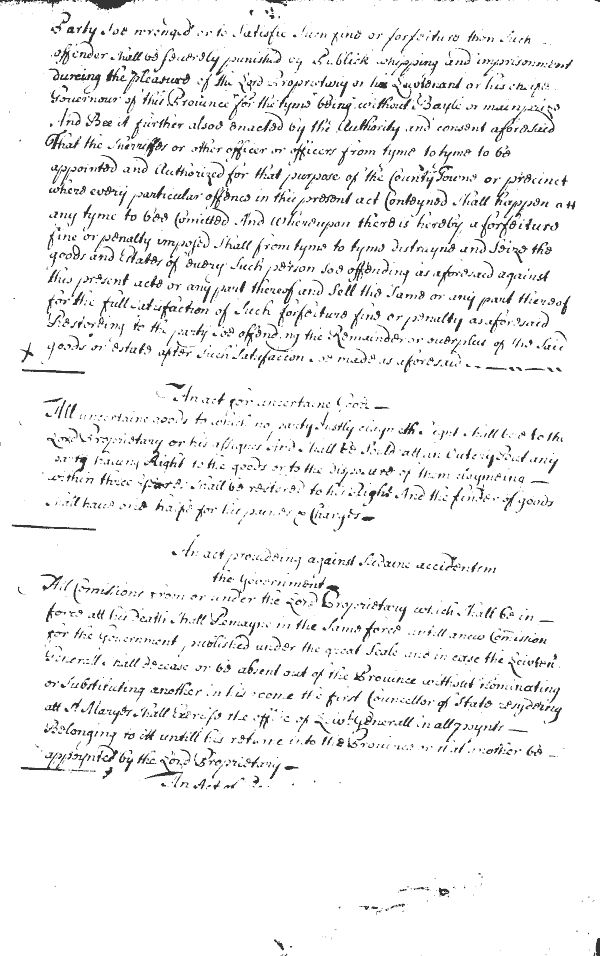 Party soe wronged or to Satisfie Such fine or forfeiture then Such
offender Shall be Severely punished by Publick whipping and imprisonment
dureing the pleasure of the Lord Proprietary or his Leivtenant or his cheife
Governour of this Province for the tyme being without Bayle or mainprize
And Bee it further alsoe enacted by the Authority and consent aforesaid
That the Sherriffes or other officer or officers from tyme to tyme to be
appointed and Authorized for that purpose of the County Towne or precinct
where every particular offence in this present act Conteyned Shall happen att
any tyme to bee Comitted And whereupon there is hereby a forfeiture
fine or penalty imposed Shall from tyme to tyme distrayne and Seize the
goods and Estates of every Such person soe offending as aforesaid against
this present acte or any part thereof and Sell the Same or any part thereof
for the full Satisfaction of Such forfeiture fine or penalty as aforesaid
Restoreing to the party soe offending the Remainder or overplus of the Said
goods or estate after Such Satisfaccion soe made as aforesaid
An act for uncertaine Goods
All uncertaine goods to which no party Justly Shall bee to the
Lord Proprietary or his assignes And Shall be Sould att an Outcry But any
party haveing Right to the goods or to the disposure of them
within three yeares Shall be restored to his Right And the finder of goods
Shall have one halfe for his paines & Charges
An act provideing against Sudaine accidents in
the Government
All Comissions from or under the Lord Proprietary which Shall be in
force att his Death Shall Remayne in the Same force untill a new Comission
for the Government published under the great Seale and in case the Leivten.
Generall Shall decease or be absent out of the Province without nominating
or Substituting another in his roome the first Councellor of State residing
att St Maryes Shall Exercise the office of Leivt Generall in all poynts
Belonging to itt untill his returne into the Province or that another be
appoynted by the Lord Proprietary
An Act